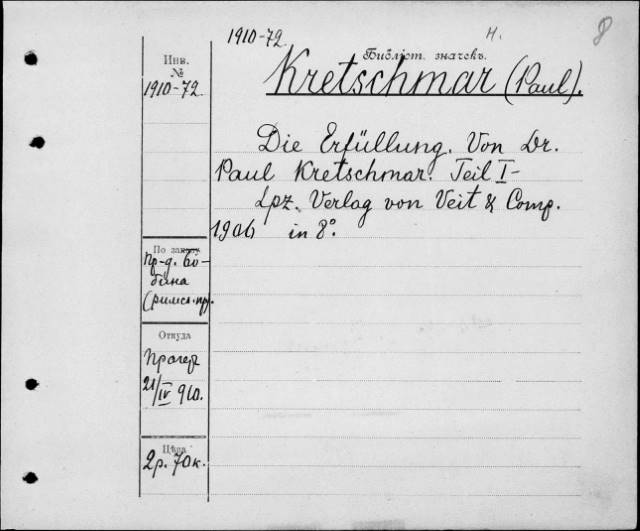 1910-72. H. 8
Библіот. значокъ.
Kretschmar (Paul).
Инв.
№
1910-72.
Die Erfüllung. Von Dr.
Paul Kretschmar. Teil I-
Lpz. Verlag von Veit & Comp.
1906 in 8°.
По заказу
пр-д. Бо-
бина
(римск. пр).
Откуда
21/IV 910.
Цѣна
2 р. 70 к.